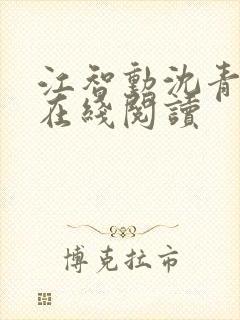 江智勳沈青
在綫閱讀
博克拉市